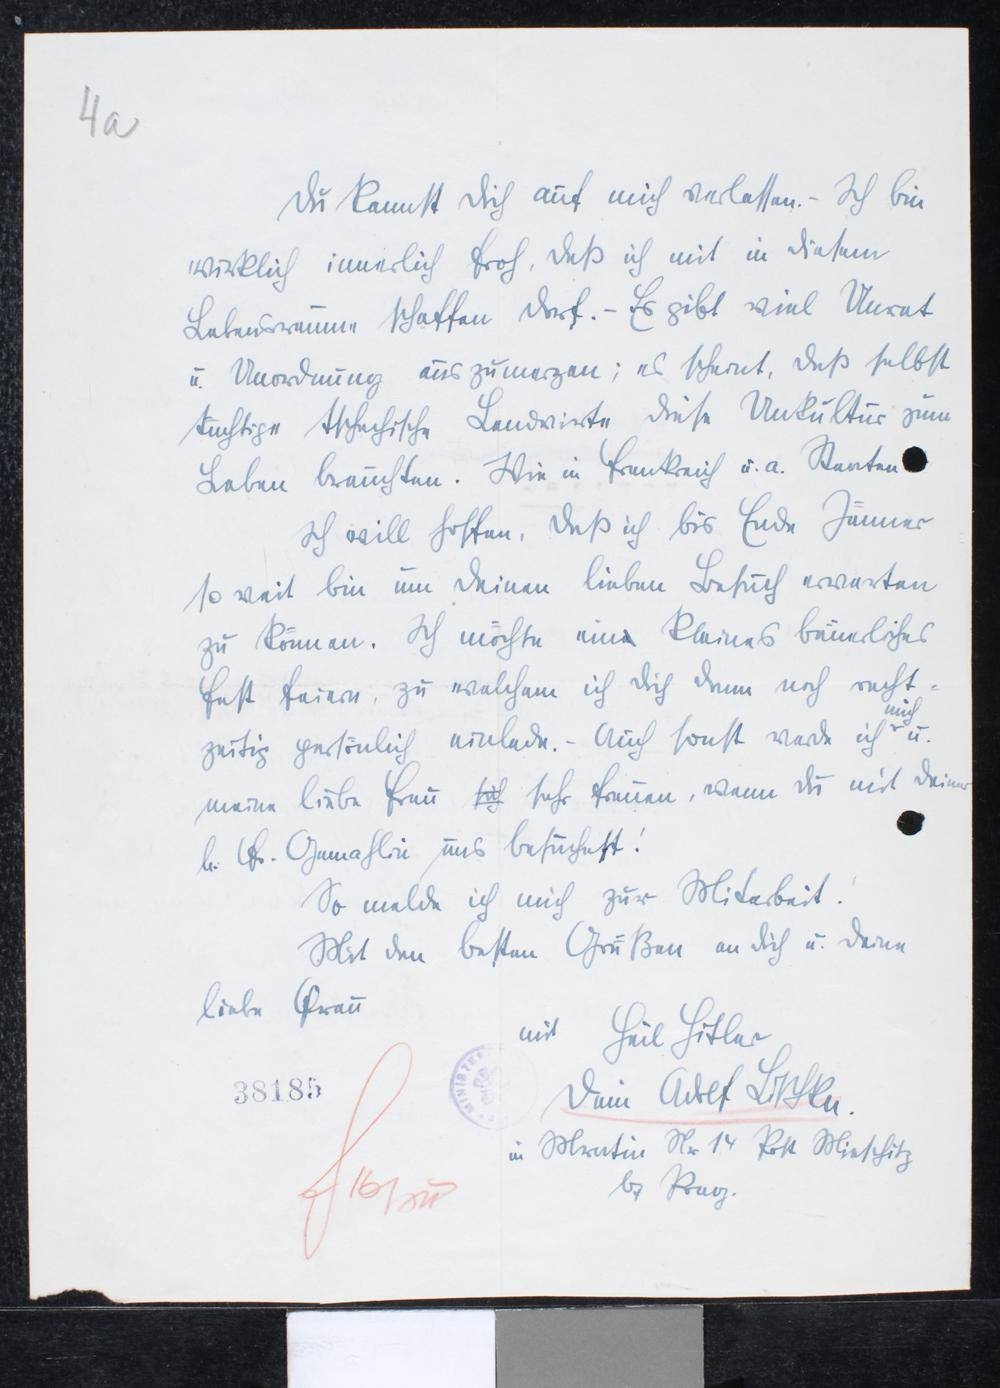 4a
Du kannst Dich auf mich verlassen. - Ich bin
wirklich innerlich froh, daß ich mit in diesem
Lebensraume schaffen darf. - Es gibt viel Unrat
u. Unordnung auszumerzen; es scheint, daß selbst
tüchtige tschechische Landwirte diese Unkultur zum
Leben brauchten. Wie in Frankreich u. a. Staaten
Ich will hoffen, daß ich bis Ende Jänner
so weit bin um Deinen lieben Besuch erwarten
zu können. Ich möchte ein kleines bäuerliches
Fest feiern, zu welchem ich Dich dann noch recht-
zeitig persönlich einlade. - Auch sonst werde ich mich u.
meine liebe Frau sich sehr freuen, wenn Du mit Deiner
b. Fr. Gemahlin uns besuchst!
So melde ich mich zur Mitarbeit!
Mit den besten Grüßen an Dich u. Deine
liebe Frau
mit Heil Hitler
Dein Adolf
in Mratin Nr 14 Post Mieschitz
bg Prag.
38185
MINISTER